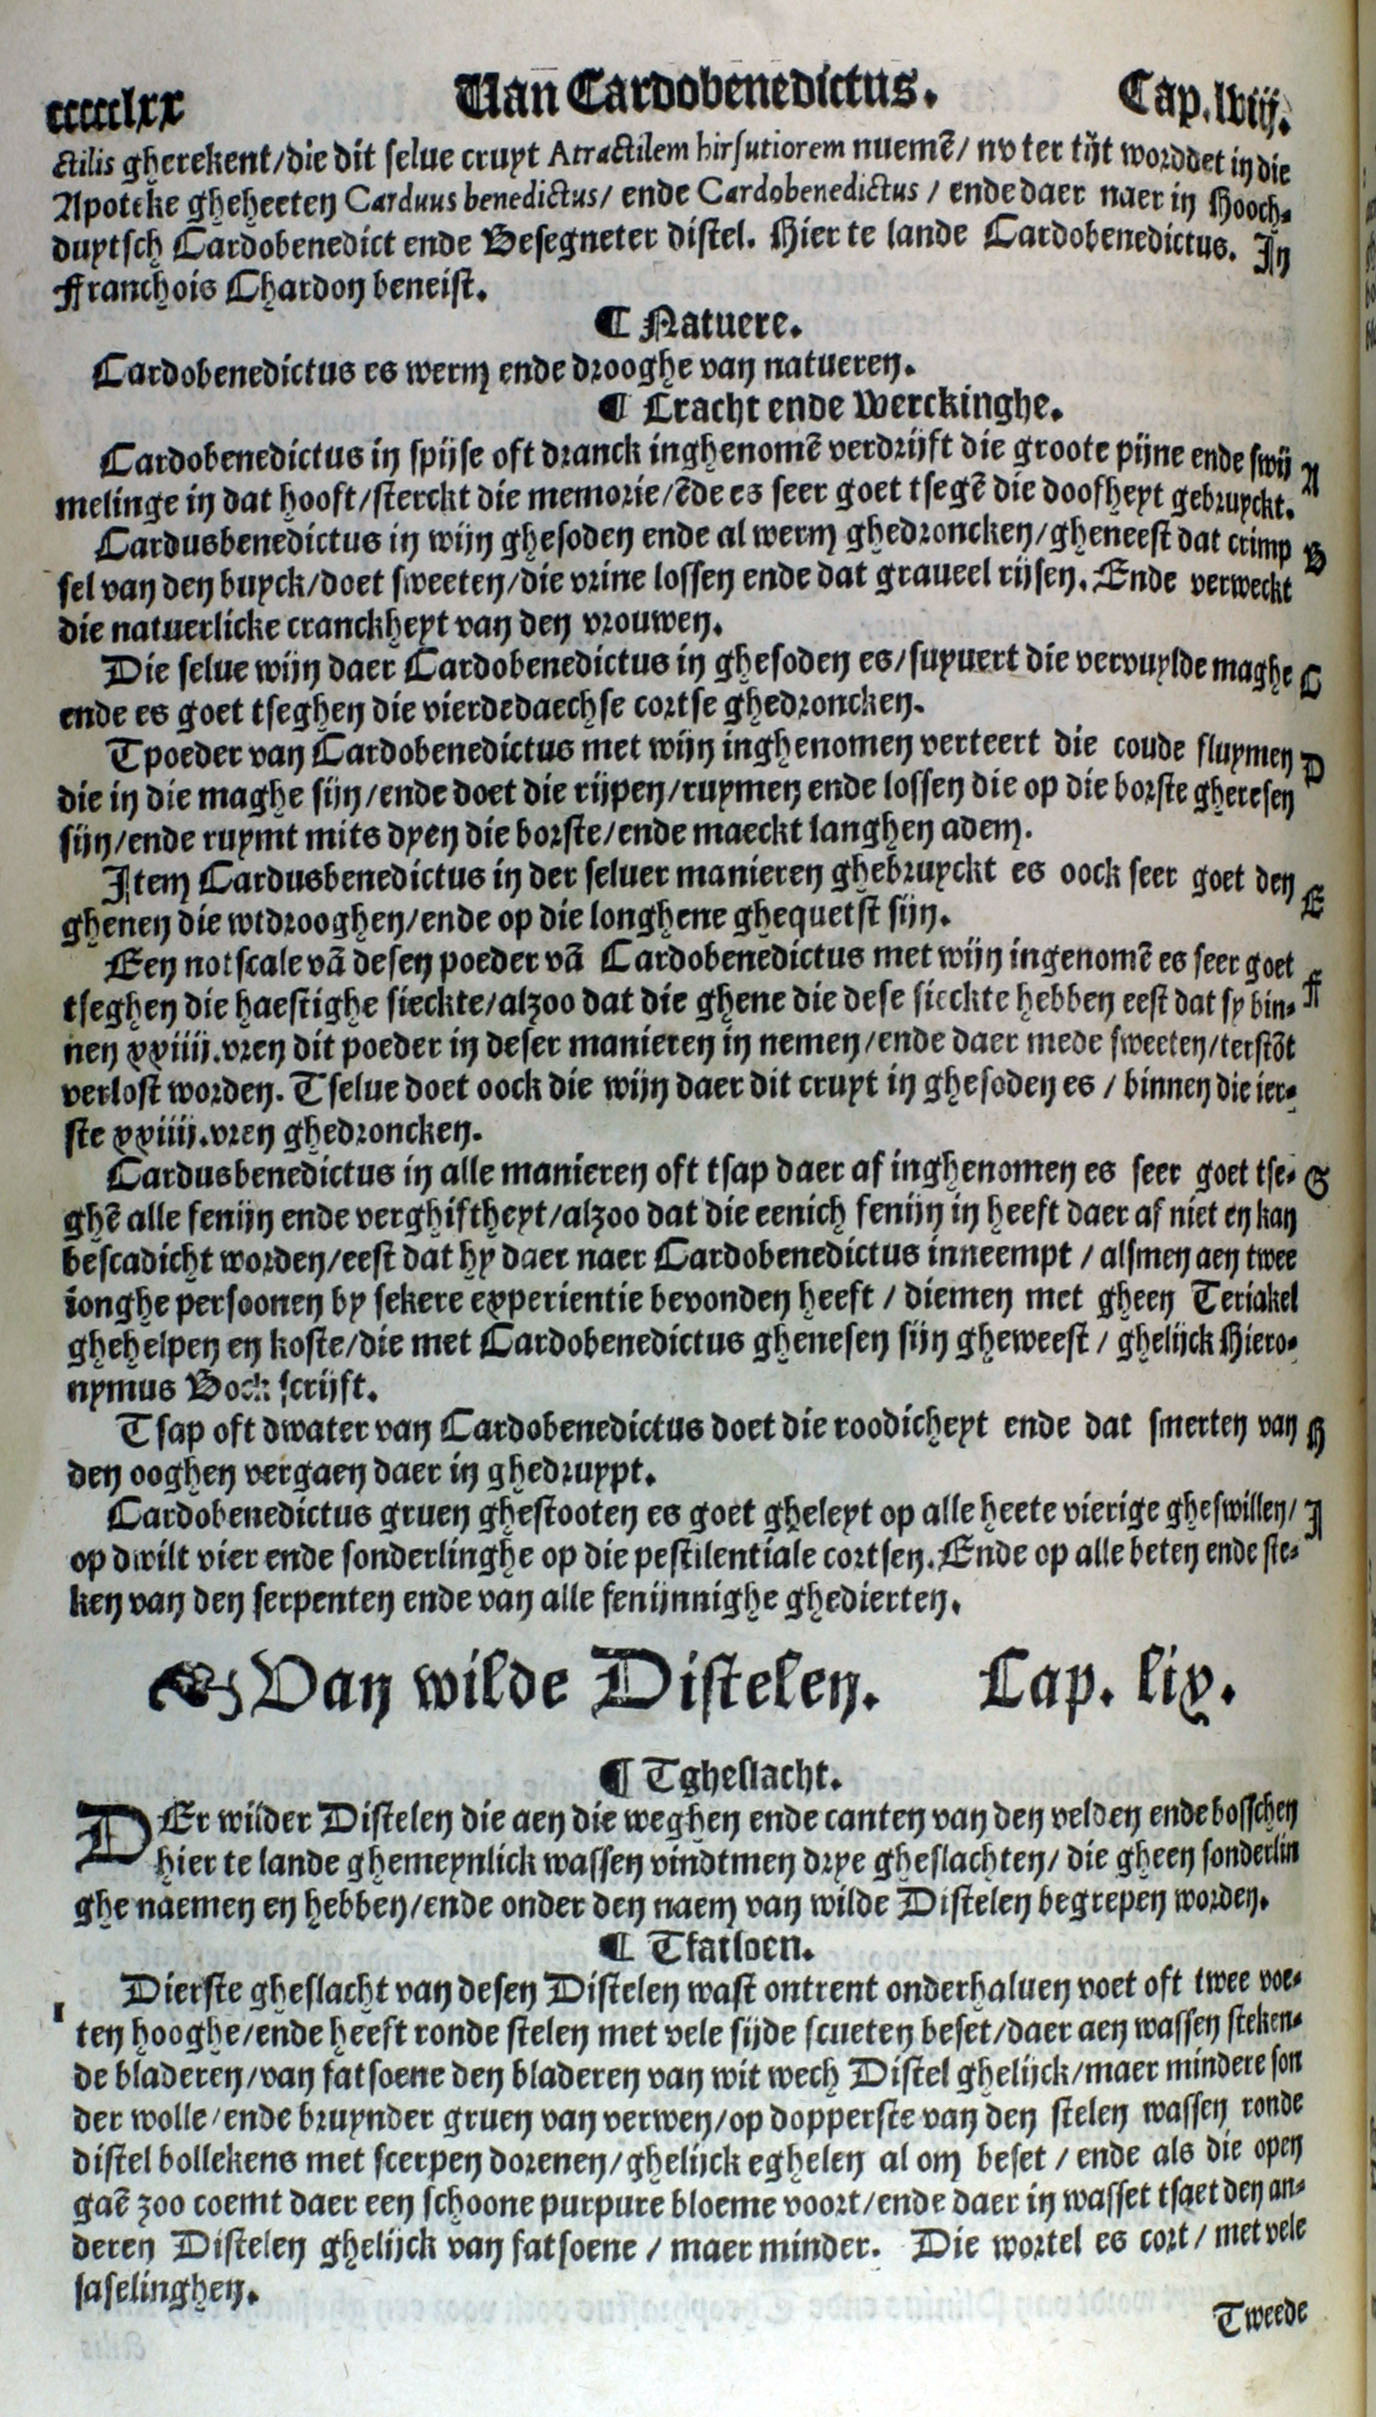 ccccclxx Van Cardobenedictus. Cap. lviij.
ctilis gherekent/die dit selue cruyt Atractilem hirsutiorem nuemẽ/ nv ter tijt worddet in die
Apoteke gheheeten Carduus benedictus/ ende Cardobenedictus / ende daer naer in Hooch-
duytsch Cardobenedict ende Besegneter distel. Hier te lande Cardobenedictus. In
Franchois Chardon beneist.
¶ Natuere.
Cardobenedictus es werm ende drooghe van natueren.
¶ Cracht ende Werckinghe.
Cardobenedictus in spijse oft dranck inghenomẽ verdrijft die groote pijne ende swij A
melinge in dat hooft/sterckt die memorie/ẽde es seer goet tsegẽ die doofheyt gebruyckt.
Cardusbenedictus in wijn ghesoden ende al werm ghedroncken/gheneest dat crimp B
sel van den buyck/doet sweeten/die vrine lossen ende dat graueel rijsen. Ende verweckt
die natuerlicke cranckheyt van den vrouwen.
Die selue wijn daer Cardobenedictus in ghesoden es/suyuert die vervuylde maghe C
ende es goet tseghen die vierdedaechse cortse ghedroncken.
Tpoeder van Cardobenedictus met wijn inghenomen verteert die coude fluymen D
die in die maghe sijn/ende doet die rijpen/ruymen ende lossen die op die borste gheresen
sijn/ende ruymt mits dyen die borste/ende maeckt langhen adem.
Item Cardusbenedictus in der seluer manieren ghebruyckt es oock seer goet den E
ghenen die wtdrooghen/ende op die longhene ghequetst sijn.
Een notscale vã desen poeder vã Cardobenedictus met wijn ingenomẽ es seer goet F
tseghen die haestighe sieckte/alzoo dat die ghene die dese sieckte hebben eest dat sy bin-
nen xxiiij.vren dit poeder in deser manieren in nemen/ende daer mede sweeten/terstõt
verlost worden. Tselue doet oock die wijn daer dit cruyt in ghesoden es / binnen die ier-
ste xxiiij.vren ghedroncken.
Cardusbenedictus in alle manieren oft tsap daer af inghenomen es seer goet tse- G
ghẽ alle fenijn ende verghiftheyt/alzoo dat die eenich fenijn in heeft daer af niet en kan
bescadicht worden/eest dat hy daer naer Cardobenedictus inneempt / alsmen aen twee
ionghe persoonen by sekere experientie bevonden heeft / diemen met gheen Teriakel
ghehelpen en koste/die met Cardobenedictus ghenesen sijn gheweest / ghelijck Hiero-
nymus Bock scrijft.
Tsap oft dwater van Cardobenedictus doet die roodicheyt ende dat smerten van H
den ooghen vergaen daer in ghedruypt.
Cardobenedictus gruen ghestooten es goet gheleyt op alle heete vierige gheswillen/ I
op dwilt vier ende sonderlinghe op die pestilentiale cortsen. Ende op alle beten ende ste-
ken van den serpenten ende van alle fenijnnighe ghedierten.
Van wilde Distelen. Cap. lix.
¶ Tgheslacht.
DEr wilder Distelen die aen die weghen ende canten van den velden ende bosschen
hier te lande ghemeynlick wassen vindtmen drye gheslachten/ die gheen sonderlin
ghe naemen en hebben/ende onder den naem van wilde Distelen begrepen worden.
¶ Tfatsoen.
Dierste gheslacht van desen Distelen wast ontrent onderhaluen voet oft twee voe-
ten hooghe/ende heeft ronde stelen met vele sijde scueten beset/daer aen wassen steken-
de bladeren/van fatsoene den bladeren van wit wech Distel ghelijck/maer mindere son
der wolle/ende bruynder gruen van verwen/op dopperste van den stelen wassen ronde
distel bollekens met scerpen dorenen/ghelijck eghelen al om beset / ende als die open
gaẽ zoo coemt daer een schoone purpure bloeme voort/ende daer in wasset tsaet den an-
deren Distelen ghelijck van fatsoene / maer minder. Die wortel es cort / met vele
faselinghen.
Tweede